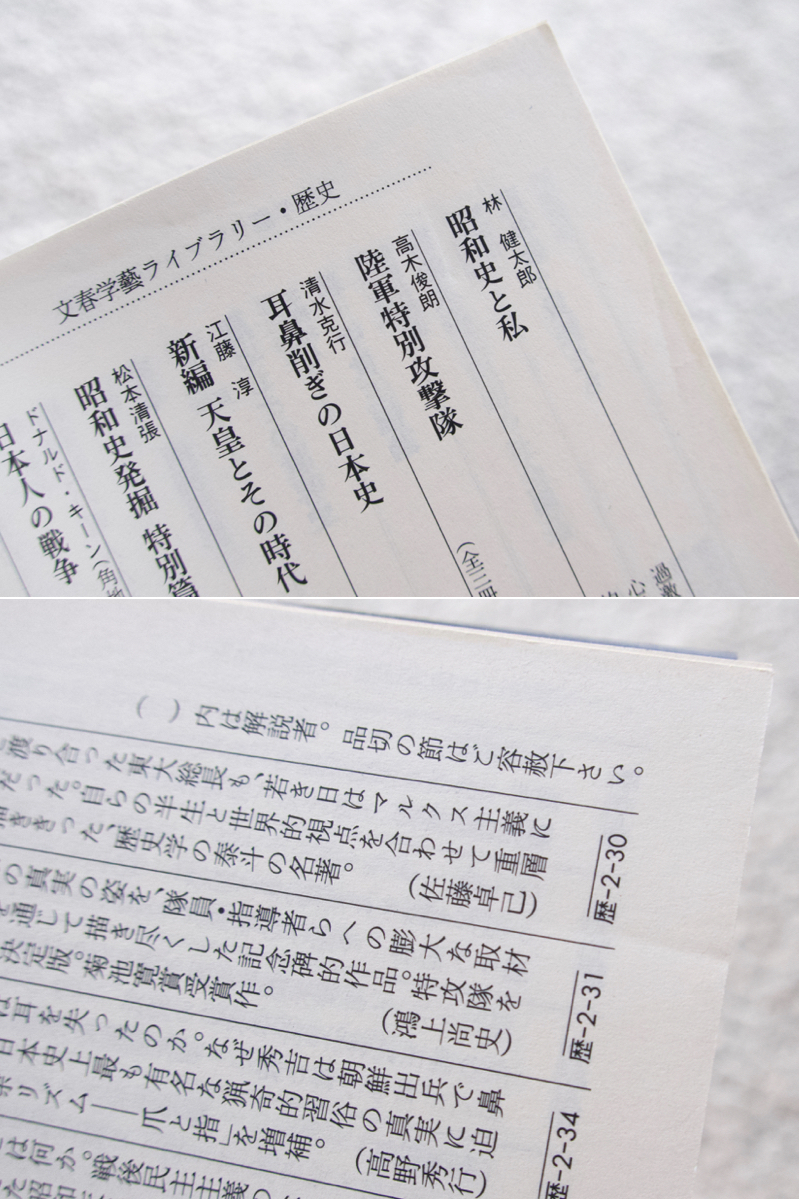 文春学藝ライブラリー・歴史
林 健太郎
昭和史と私
高木俊朗
陸軍特別攻撃隊
(全三冊
清水克行
耳鼻削ぎの日本史
江藤 淳
新編 天皇とその時代
松本清張
昭和史発掘 特別篇
ドナルド・キーン(角地
日本人の戦争
過激
心
( )内は解説者。品切の節はご容赦下さい。
渡り合った東大総長も、若き日はマルクス主義に
だった。自らの半生と世界的視点を合わせて重層
描ききった、歴史学の泰斗の名著。 (佐藤卓己)
歴-2-30
の真実の姿を、隊員・指導者らへの膨大な取材
を通じて描き尽くした記念碑的作品。特攻隊を
決定版。菊池寛賞受賞作。 (鴻上尚史)
歴-2-31
は耳を失ったのか。なぜ秀吉は朝鮮出兵で鼻
日本史上最も有名な猟奇的習俗の真実に迫
ポリズム――爪と指」を増補。 (高野秀行)
歴-2-34
は何か。戦後民主主義の
た昭和